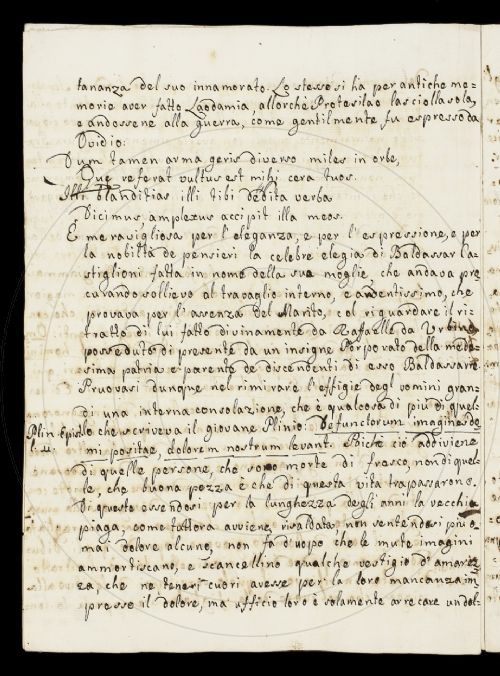 tananza del suo innamorato. Lo stesso si ha per antiche me=
morie aver fatto Laodamia, allorchè Protesilao lasciolla sola,
e andossene alla guerra, come gentilmente fu espresso da
Ovidio:
Dum tamen arma geris diverso miles in orbe,
Quæ referat vultus est mihi cera tuos.
Illi blanditias illi tibi debita verba
Dicimus, amplexus accipit illa meos.
È meravigliosa per l'eleganza, e per l'espressione, e per
la nobiltà de pensieri la celebre elegia di Baldassar Ca=
stiglioni fatta in nome della sua moglie, che andava pro
curando sollievo al travaglio interno, e ardentissimo, che
provava per l'assenza del Marito, col riguardare il ri=
tratto di lui fatto divinamente da Raffaelle da Urbino,
posseduto di presente da un insigne Porporato della mede=
sima patria e parente de discendenti di esso Baldassarre.
Pruovasi dunque nel rimirare l'effigie degl'uomini gran=
di una interna consolazione, che è qualcosa di più di quel=
Plin. Epist. lo che scriveva il giovane Plinio: Defunctorum imagines do
mi positae, dolorem nostrum levant. Poichè ciò addiviene
di quelle persone, che sono morte di fresco, non di quel=
le, che buona pezza è che di questa vita trapassarono.
Di questo essendosi per la lunghezza degli anni la vecchia
piaga, come tuttora avviene, risaldata, non sentendosi più o
mai dolore alcuno, non fa d'uopo che le mute imagini
ammortiscano, e scancellino qualche vestigio d'amarez
za, che ne teneri cuori avesse per la loro mancanza im
presso il dolore, ma ufficio loro è solamente arrecare un dol=